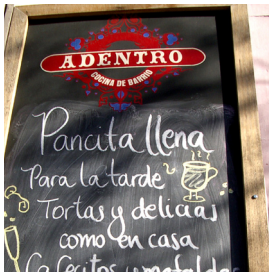 ADENTRO
COCINA DE BARRIO
Pancita llena
Para la tarde
Tortas y delicias
como en casa
Cafecitos y